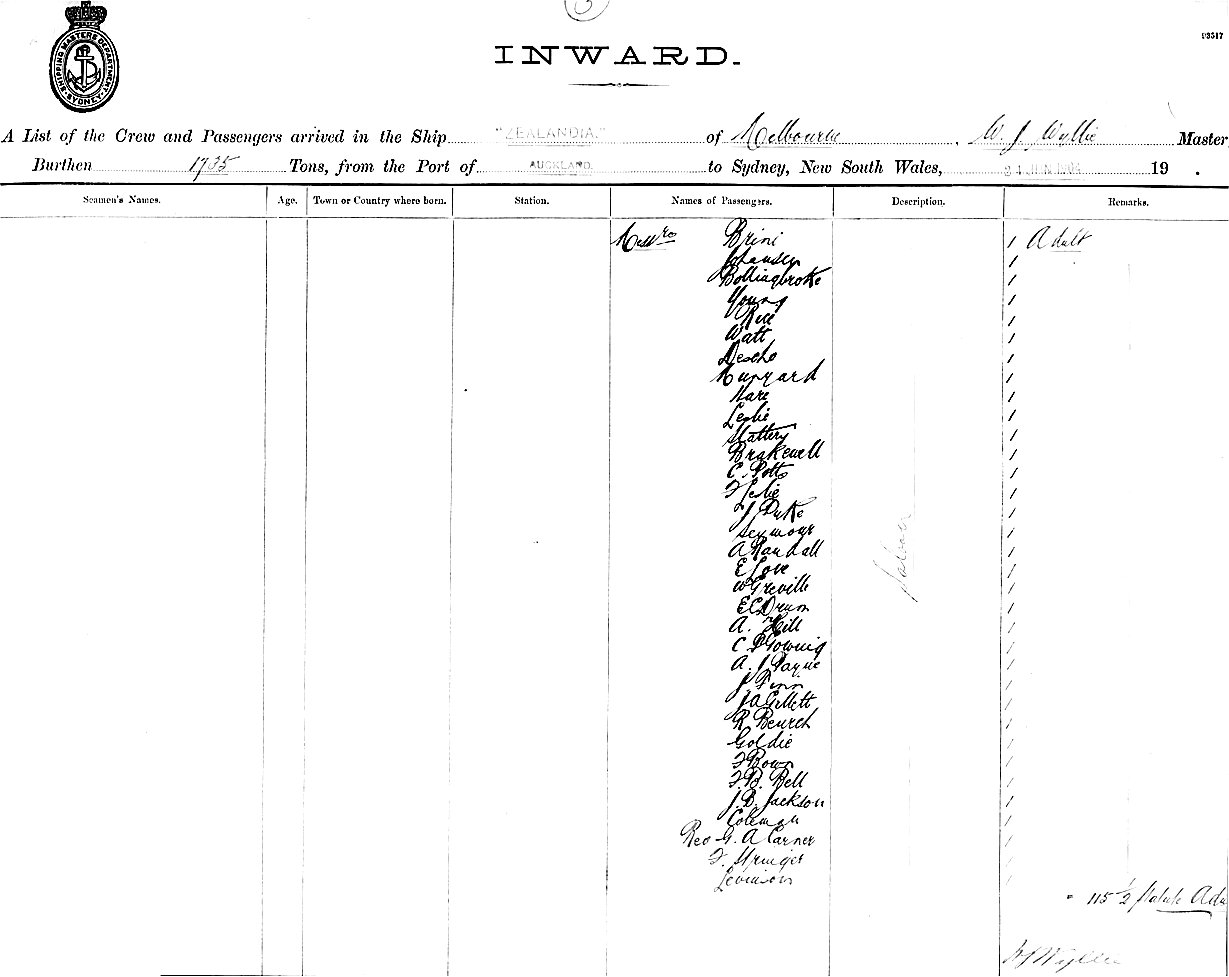 SHIPPING MASTERS DEPARTMENT SYDNEY
INWARD.
A List of the Crew and Passengers arrived in the Ship "ZEALANDIA." of Melbourne, W. J. Wyllie Master
Burthen 1735 Tons, from the Port of AUCKLAND. to Sydney, New South Wales, 24 JUN 1904 19 .
Seamen's Names. Age. Town or Country where born. Station. Names of Passengers. Description. Remarks.
Messrs Brini 1 Adult
Johansen 1
Bollingbroke 1
Young 1
Rice 1
Watt 1
1
1
Hare 1
Leslie 1
Slattery 1
Brakewell 1
C. Potts 1
F Leslie 1
J Duke 1
Seymour 1
A Randall 1
E Love 1
W Greville 1
E C Drum 1
A. Hill 1
C 1
A. J Payne 1
J Finn 1
J A Gillett 1
R 1
Goldie 1
F Bown 1
F. B. Bell 1
J. B. Jackson 1
Coleman 1
Rev G. A Carner 1
F. Stringer 1
Levinson 1
Saloon
= 115 1/2 Statute Adu
W J Wyllie